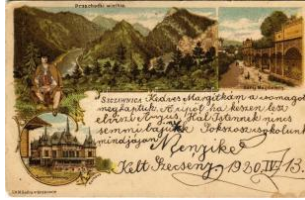 Przechadki
SZCZAWNICA Kedves Margitkám a csomagot
megkaptuk. A cipő ha készen lesz
elviszi Hál Istennek nincs
semmi bajunk. Sokszor csokolunk
mindnyájan
Renyike
Kelt Szécsény, 1920 IV 13.